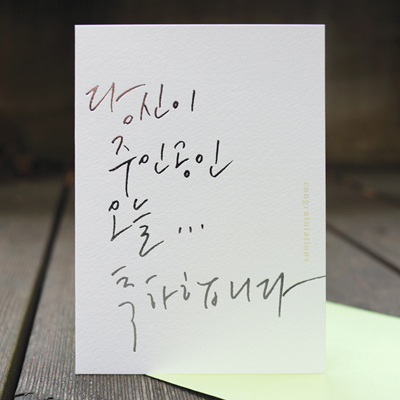 당신이
주인공인
오늘...
축하합니다
congratulations